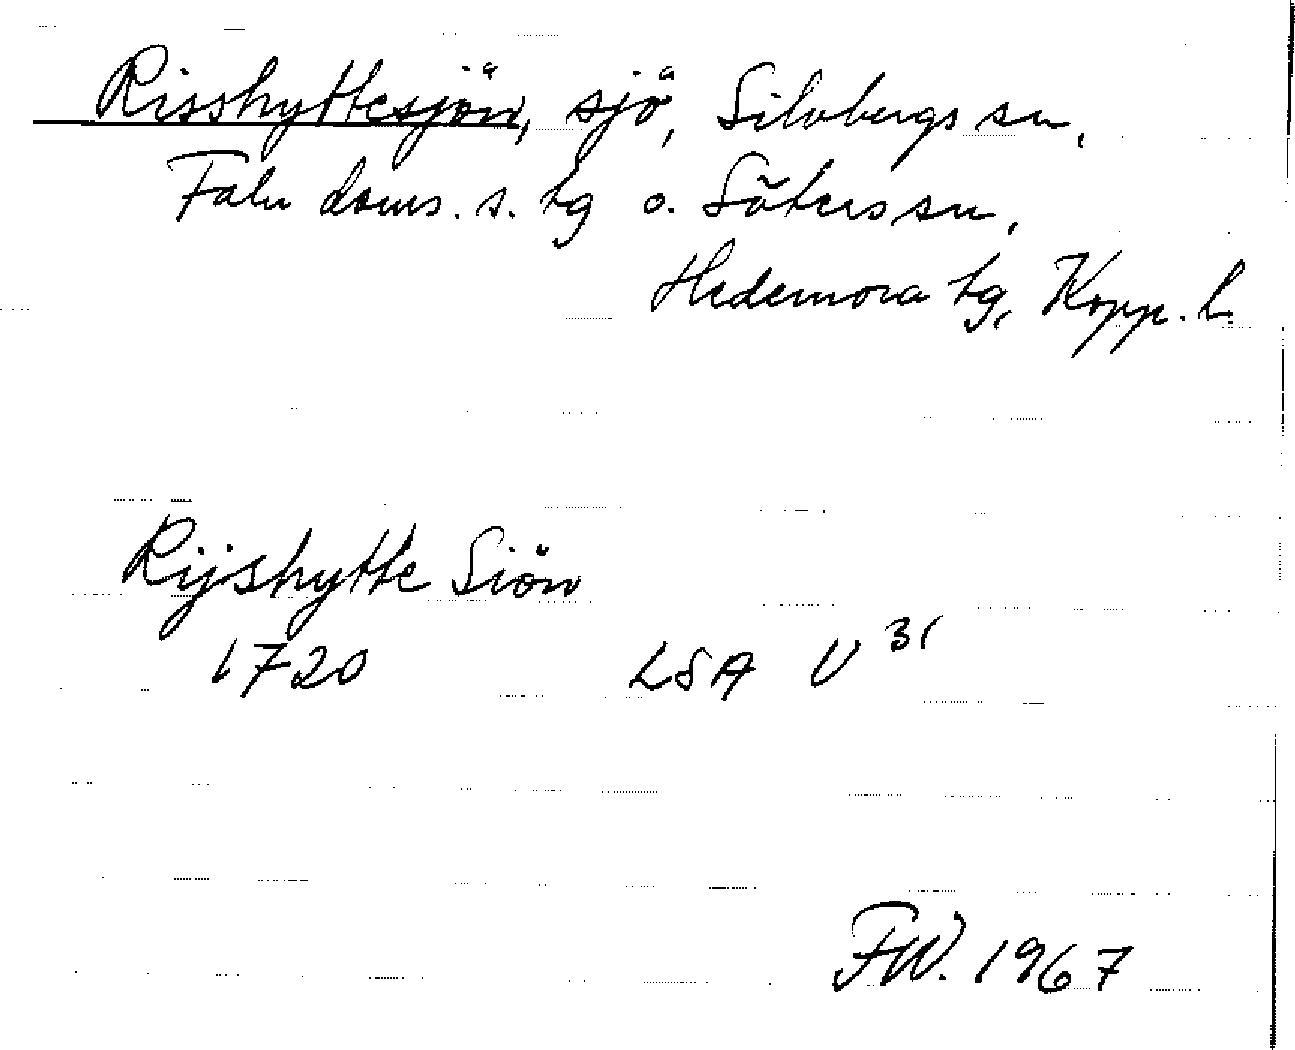 Risshyttesjön, sjö, Silvbergs sn,
Falu doms. s. tg o. Säters sn,
Hedemora tg, Kopp. l.
Rijshytte Siön
1720 LSA U 31
FW. 1967